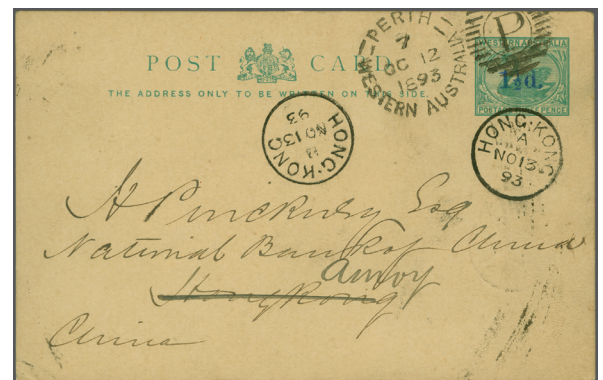 POST CARD
THE ADDRESS ONLY TO BE WRITTEN ON THIS SIDE.
PERTH
7
OC 12
1893
WESTERN AUSTRALIA
P
WESTERN AUSTRALIA
1½d.
HONG-KONG
B
NO 13
93
HONG-KONG
A
NO 13
93
H Esq
National Bank of China
Amoy
Hong Kong
China